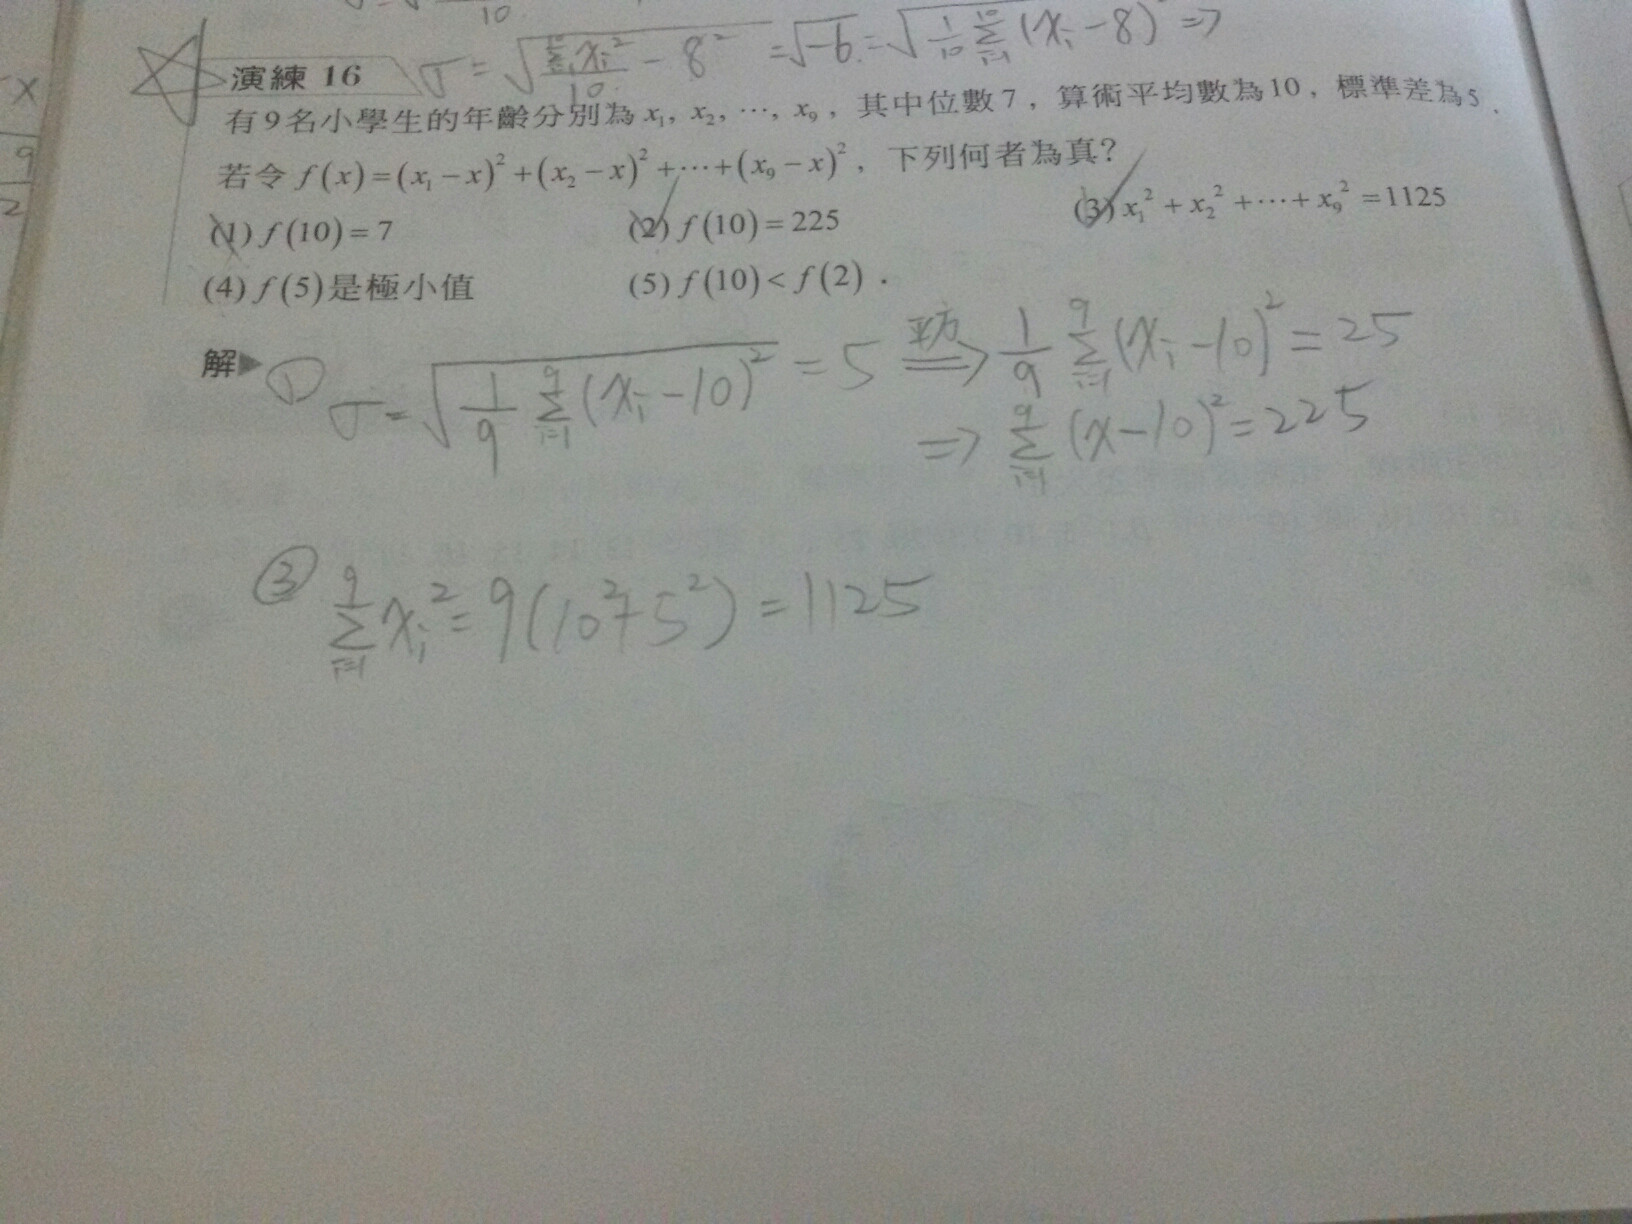 10
σ = √(Σ_{i=1}^{10} x_i² / 10 − 8²) = √−6 = √(1/10 Σ_{i=1}^{10} (x_i − 8)²) ⇒
演練 16
有9名小學生的年齡分別為 x₁, x₂, …, x₉，其中位數7，算術平均數為10，標準差為5．
若令 f(x)=(x₁−x)²+(x₂−x)²+⋯+(x₉−x)²，下列何者為真?
(1) f(10)=7 (2) f(10)=225 (3) x₁²+x₂²+⋯+x₉²=1125
(4) f(5)是極小值 (5) f(10)<f(2)．
解▶ ① σ = √(1/9 Σ_{i=1}^{9} (x_i − 10)²) = 5 平方⇒ 1/9 Σ_{i=1}^{9} (x_i − 10)² = 25
⇒ Σ_{i=1}^{9} (x − 10)² = 225
③ Σ_{i=1}^{9} x_i² = 9(10² + 5²) = 1125
x
9
2